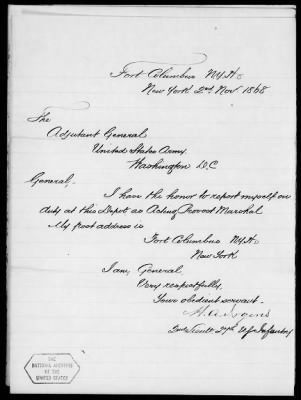 Fort Columbus N.Y.H.
New York 2nd Nov 1868
The
Adjutant General
United States Army
Washington D.C
General,
I have the honor to report myself on
duty at this Depot as Acting Provost Marshal
My post address is
Fort Columbus N.Y.H.
New York
I am, General,
Very respectfully,
Your obedient servant.
2nd Lieut 27th Infantry
THE
NATIONAL ARCHIVES
OF THE
UNITED STATES